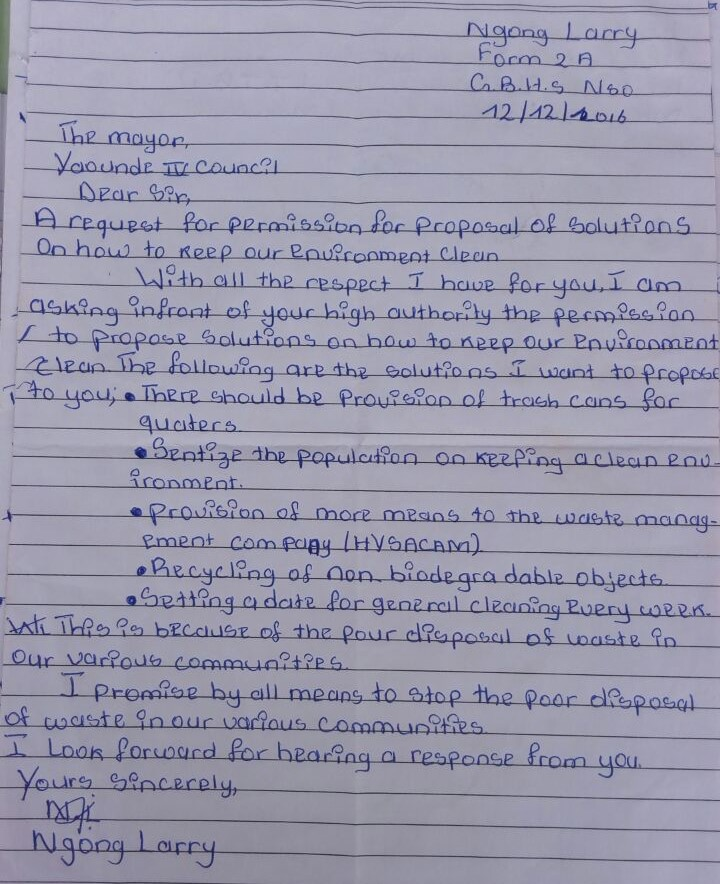 Ngong Larry
Form 2 A
G.B.H.S Nso
12/12/2016
The mayor,
Yaounde IV Council
Dear Sir,
A request for permission for proposal of solutions
On how to keep our environment clean
With all the respect I have for you, I am
asking infront of your high authority the permission
to propose solutions on how to keep our environment
clean. The following are the solutions I want to propose
to you; • There should be provision of trash cans for
quaters.
• Sentize the population on keeping a clean env-
ironment.
• Provision of more means to the waste manag-
ement company (HVSACAM)
• Recycling of non biodegradable objects.
• Setting a date for general cleaning every week.
This is because of the pour disposal of waste in
our various communities.
I promise by all means to stop the poor disposal
of waste in our various communities.
I Look forward for hearing a response from you.
Yours Sincerely,
Ngong Larry